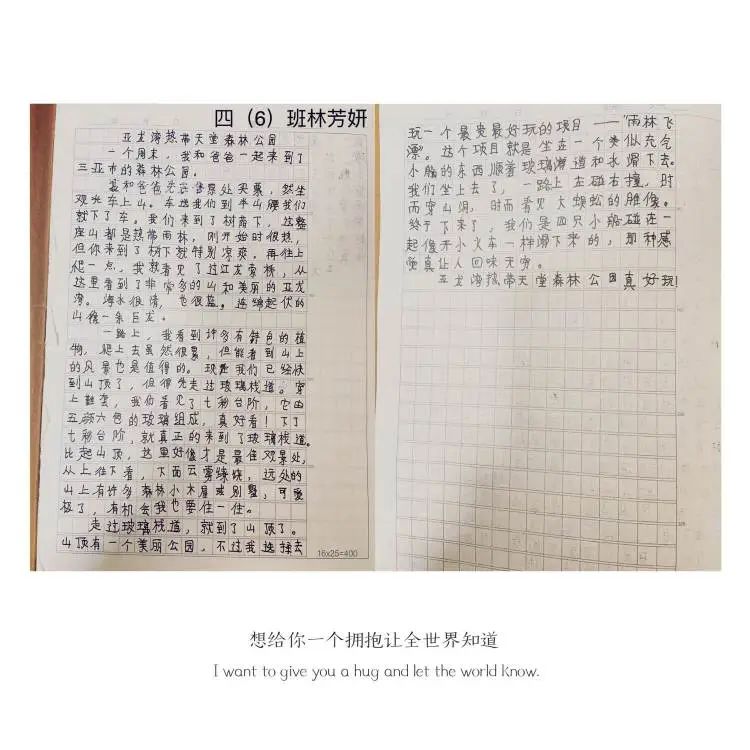 四（6）班林芳妍
亚龙湾热带天堂森林公园
一个周末，我和爸爸一起来到了
三亚市的森林公园。
我和爸爸先去售票处买票，然坐
观光车上山。车送我们到半山腰我们
就下了车。我们来到了树荫下，这整
座山都是热带雨林，刚开始时很热，
但你来到了树下就特别凉爽，再往上
爬一点，我就看见了过江龙索桥，从
这里看到了非常多的山和美丽的亚龙
湾。海水很清，也很蓝。连绵起伏的
山像一条巨龙。
一路上，我看到许多有特色的植
物，爬上去虽然很累，但能看到山上
的风景也是值得的。现在我们已经快
到山顶了，但得先走过玻璃栈道。穿
上鞋套，我们看见了七彩台阶，它由
五颜六色的玻璃组成，真好看！下了
七彩台阶，就真正的来到了玻璃栈道。
比起山顶，这里好像才是最佳观景处，
从上往下看，下面云雾缭绕，远处的
山上有许多森林小木屋或别墅，可爱
极了，有机会我也要住一住。
走过玻璃栈道，就到了山顶了。
山顶有一个美丽公园，不过我选择去
16x25=400
玩一个最爱最好玩的项目——“雨林飞
漂”。这个项目就是坐在一个类似充气
小船的东西顺着玻璃滑道和水滑下去。
我们坐上去了，一路上左碰右撞，时
而穿山洞，时而看见大蜈蚣的雕像。
终于下来了，我们是四只小船碰在一
起像开小火车一样滑下来的，那种感
觉真让人回味无穷。
亚龙湾热带天堂森林公园真好玩！
想给你一个拥抱让全世界知道
I want to give you a hug and let the world know.